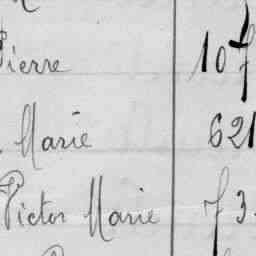 Pierre 107
Marie 621
Victor Marie 73